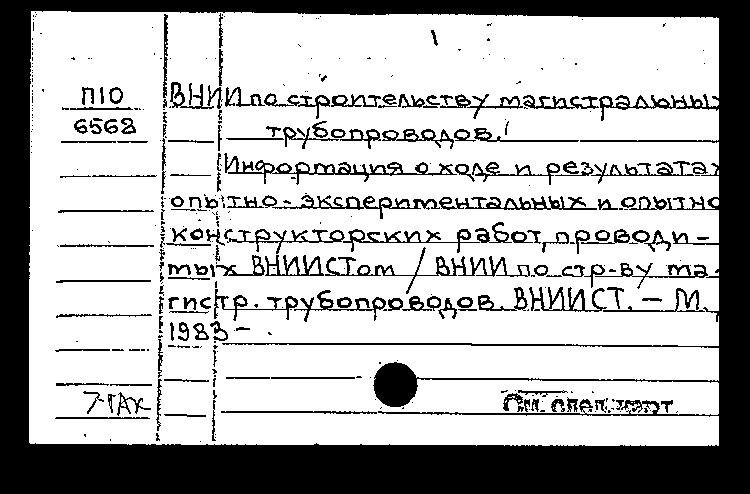 П10
6568
ВНИИ по строительству магистральных
трубопроводов.
Информация о ходе и результатах
опытно-экспериментальных и опытно
конструкторских работ, проводи-
мых ВНИИСТом / ВНИИ по стр-ву ма-
гистр. трубопроводов. ВНИИСТ. — М.,
1983 - .